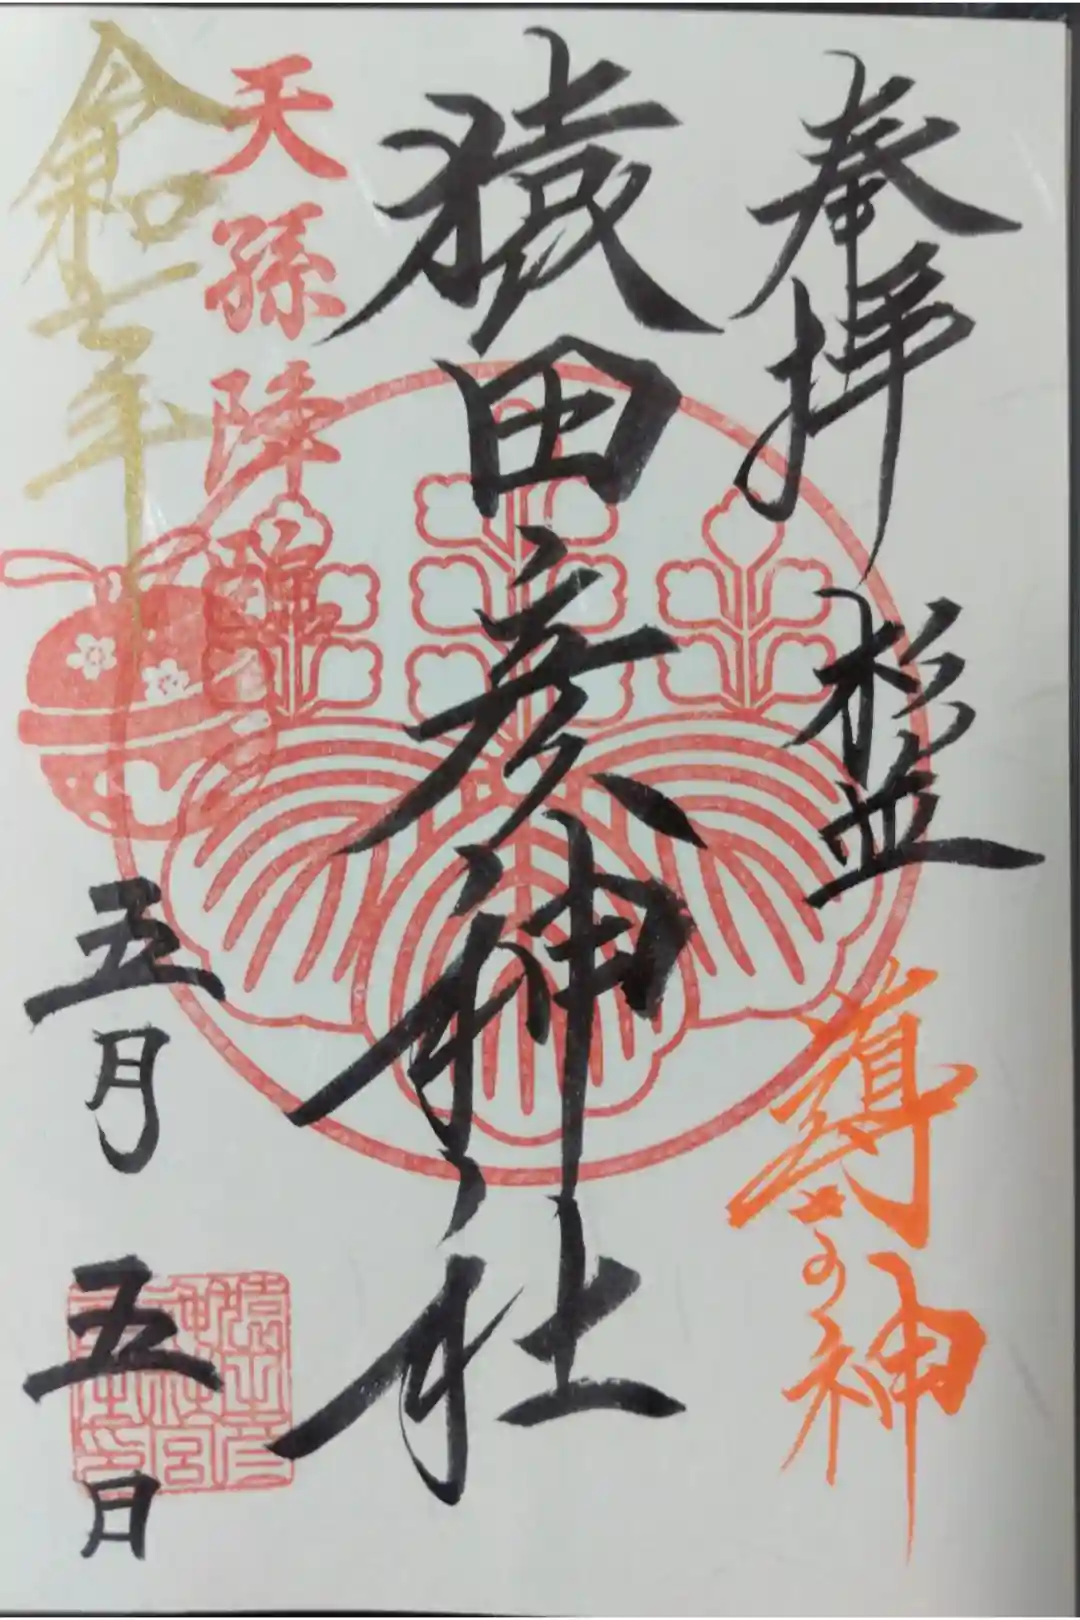 奉拝
杉並
導きの神
猿田彦神社
天孫降臨
令和二年
五月
五日